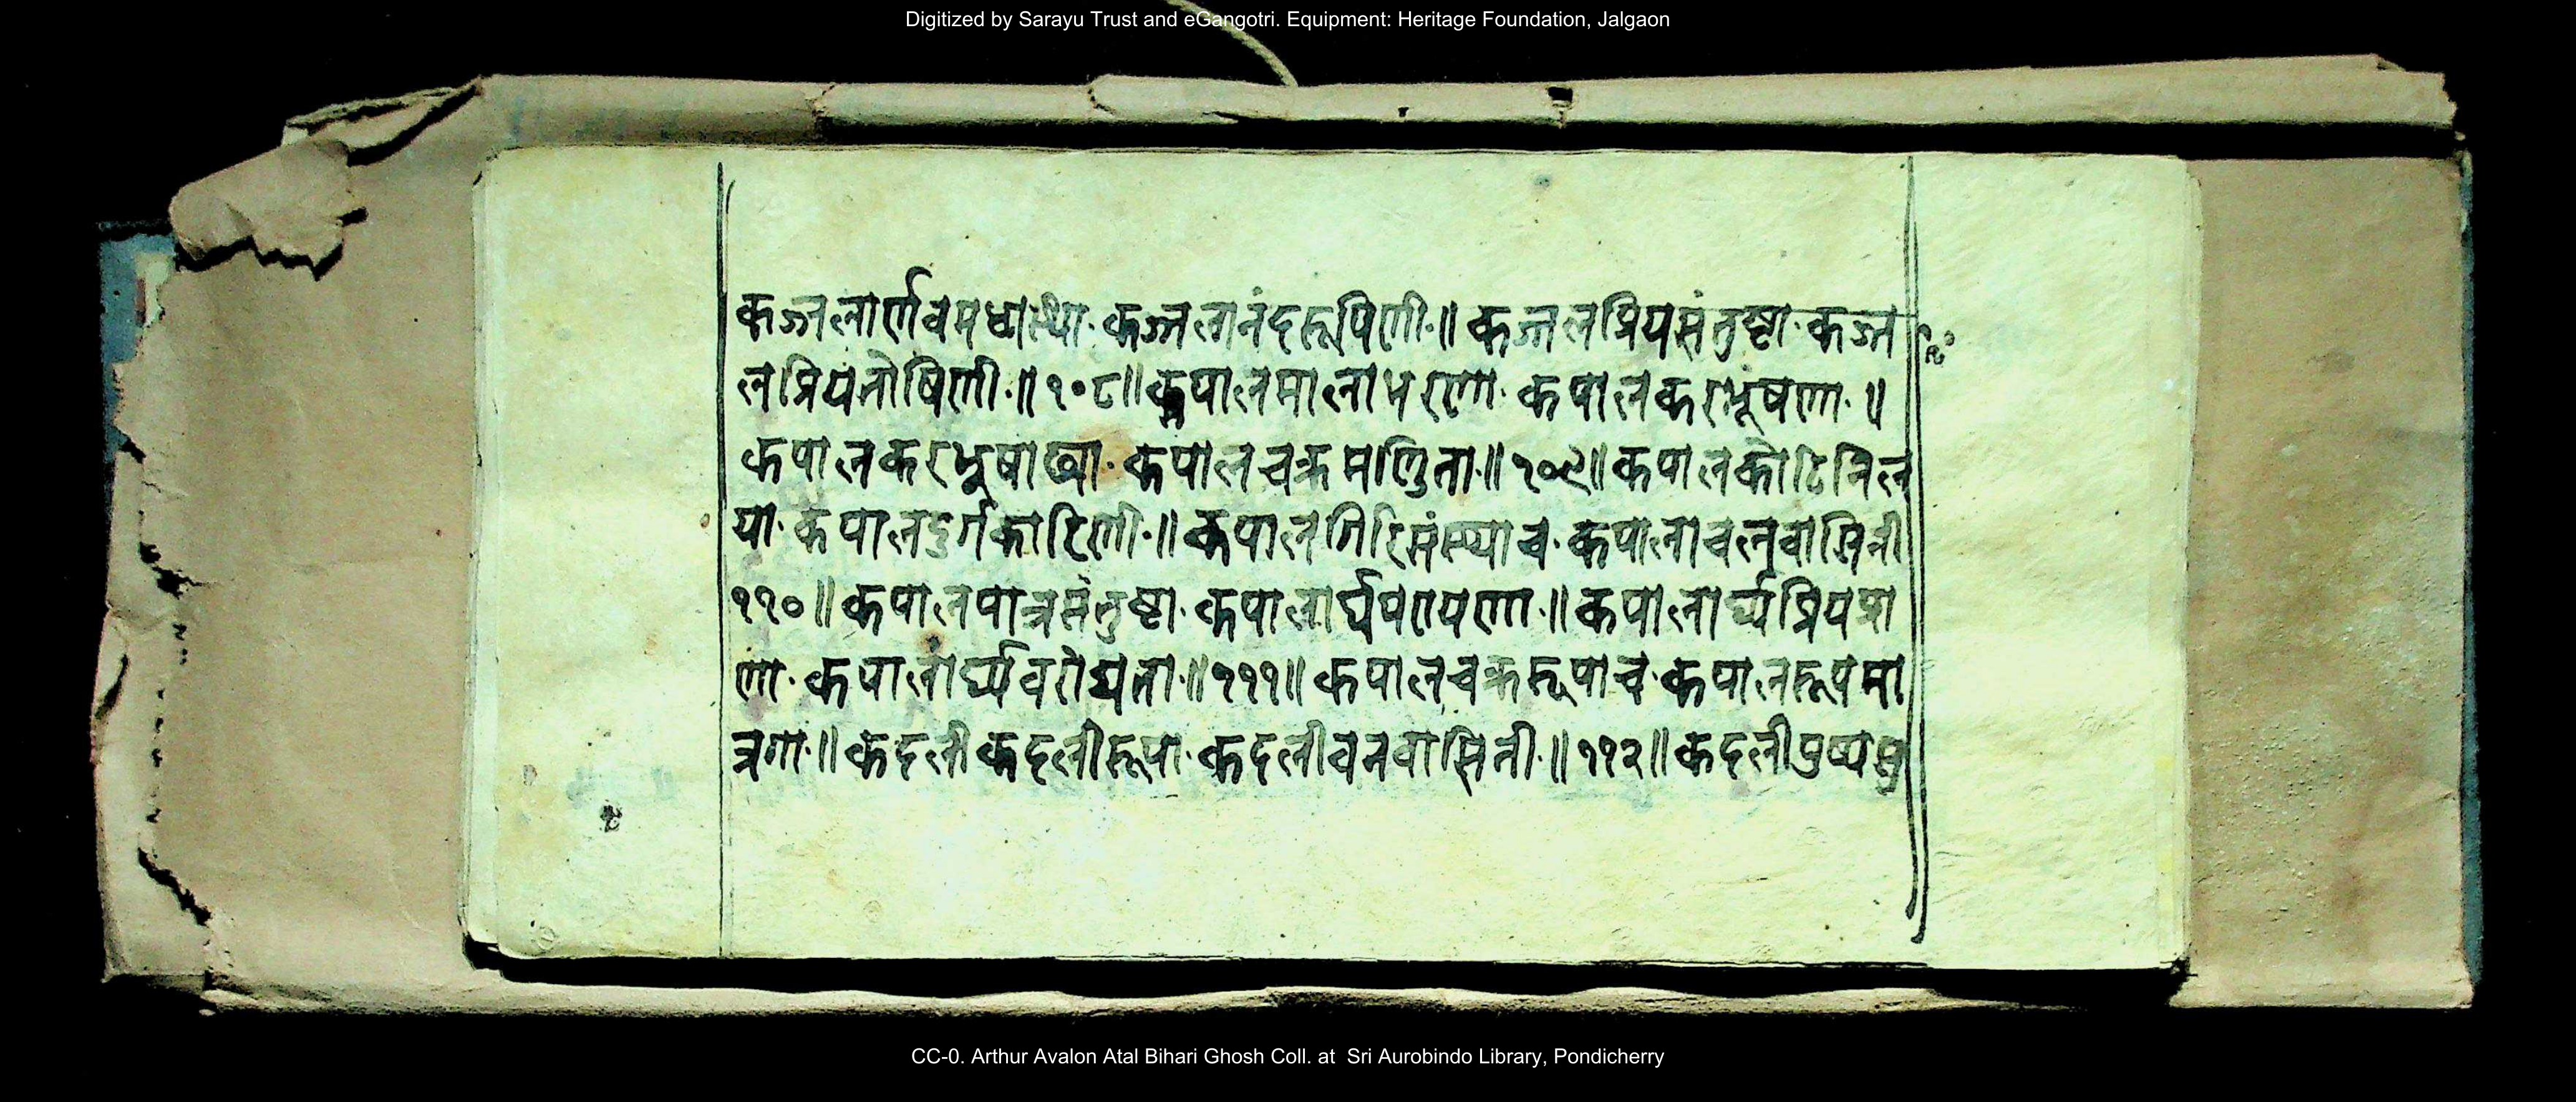 Digitized by Sarayu Trust and eGangotri. Equipment: Heritage Foundation, Jalgaon
कज्जलार्णवमधास्था· कज्जलानंदरूपिणी·॥ कज्जलप्रियसंतुष्टा· कज्ज
लप्रियतोषिणी·॥१०८॥कपालमालाभरणा· कपालकरभूषणा·॥
कपालकरभूषाढ्या· कपालचक्रमण्डिता·॥१०९॥कपालकोटिनिल
या· कपालदुर्गकारिणी·॥ कपालगिरिसंस्थाच· कपालाचलवासिनी
११०॥कपालपात्रसंतुष्टा· कपालार्घपरायणा·॥कपालार्घ्यप्रियप्रा
णा· कपालार्घ्यवरोद्यता·॥१११॥ कपालचक्ररूपाच· कपालरूपमा
त्रगा·॥कदलीकदलीरूपा· कदलीवनवासिनी·॥११२॥कदलीपुष्पसु
CC-0. Arthur Avalon Atal Bihari Ghosh Coll. at Sri Aurobindo Library, Pondicherry